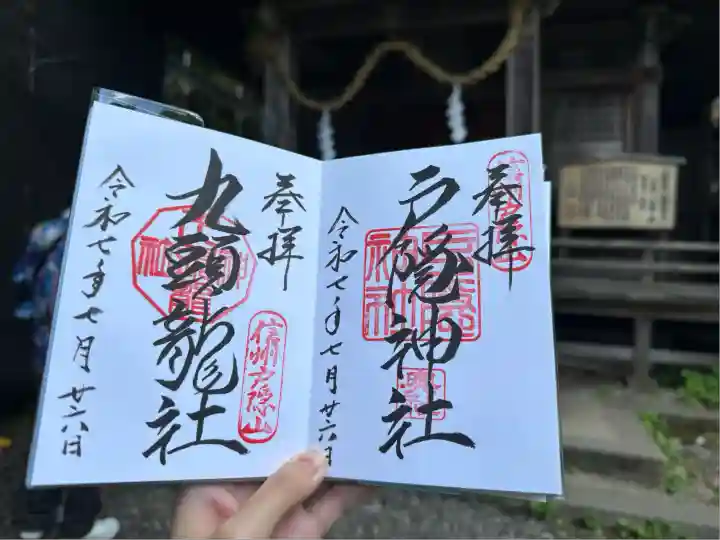 奉拝
戸隠神社
令和七年七月廿六日
奉拝
九頭龍社
信州戸隠山
令和七年七月廿六日